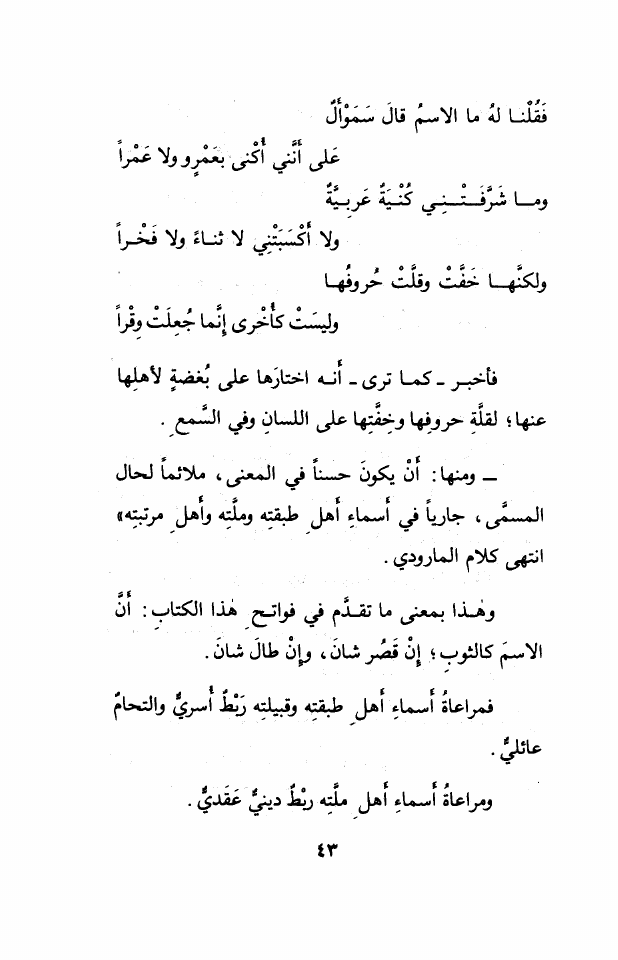 فَقُلْنـا لهُ ما الاسمُ قالَ سَمَوْأَلٌ
عَلى أَنَّني أُكْنى بعَمْرٍو ولا عَمْراً
ومـا شَرَّفَـتْـنِـي كُنْـيَةٌ عَرَبِـيَّةٌ
ولا أَكْسَبَتْنِي لا ثنـاءً ولا فَخْـراً
ولكنَّهـا خَفَّتْ وقلَّتْ حُروفُهـا
وليسَتْ كأُخْرى إِنَّما جُعِلَتْ وِقْراً
فأخبـر ـ كمـا ترى ـ أَنـه اختارَها على بُغضةٍ لأهلِها
عنها؛ لقلَّةِ حروفِها وخِفَّتِها على اللسانِ وفي السَّمعِ.
ـ ومنها: أَنْ يكونَ حسناً في المعنى، ملائماً لحال
المسمَّى، جارياً في أَسماءِ أَهلِ طبقتِه وملَّتِه وأَهلِ مرتبتِه»
انتهى كلام المارودي.
وهٰـذا بمعنى ما تقـدَّم في فواتـحِ هٰذا الكتابِ: أَنَّ
الاسمَ كالثوبِ؛ إِنْ قَصُر شانَ، وإِنْ طالَ شانَ.
فمراعاةُ أَسماءِ أَهلِ طبقتِه وقبيلتِه رَبْطٌ أُسريٌّ والتحامٌ
عائليٌّ.
ومراعاةُ أَسماءِ أَهلِ ملَّتِه ربْطٌ دينيٌّ عَقَديٌّ.
٤٣